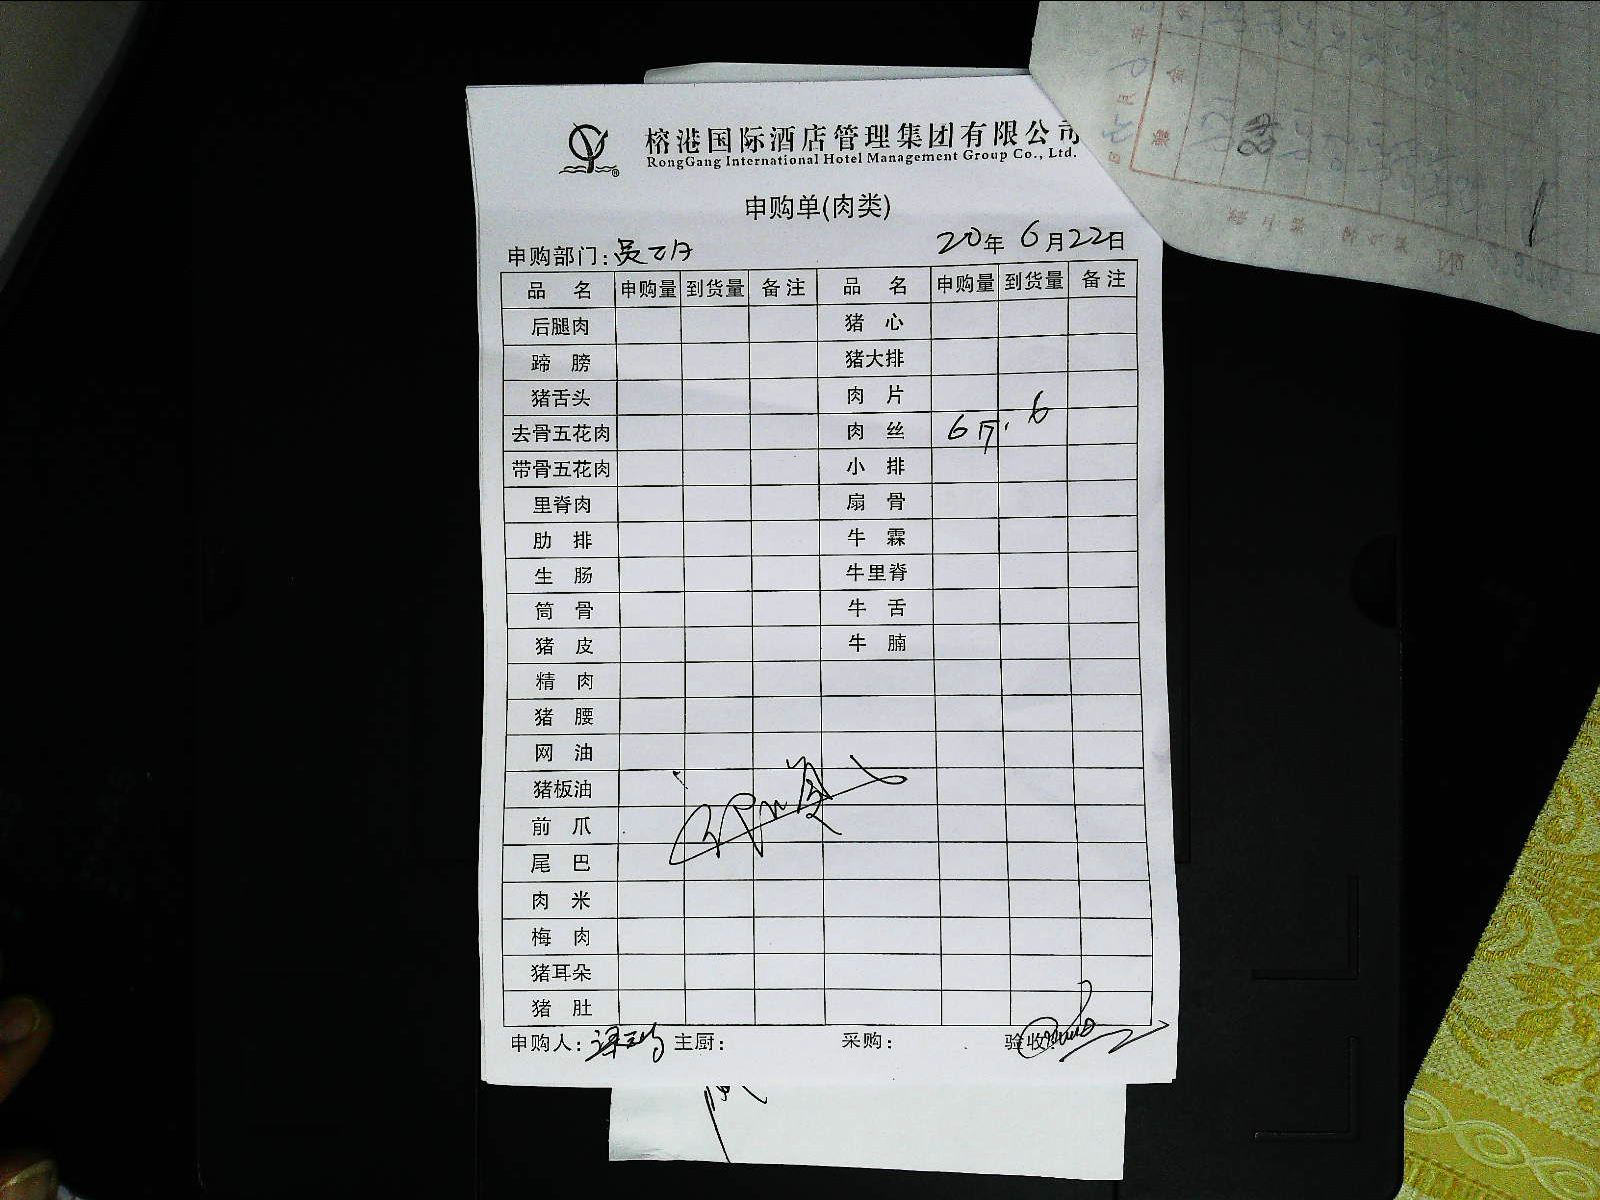 榕港国际酒店管理集团有限公司
RongGang International Hotel Management Group Co., Ltd.
申购单(肉类)
申购部门: 20年 6月22日
品 名 申购量 到货量 备注 品 名 申购量 到货量 备注
后腿肉 猪 心
蹄 膀 猪大排
猪舌头 肉 片
去骨五花肉 肉 丝 6斤. 6
带骨五花肉 小 排
里脊肉 扇 骨
肋 排 牛 霖
生 肠 牛里脊
筒 骨 牛 舌
猪 皮 牛 腩
精 肉
猪 腰
网 油
猪板油
前 爪
尾 巴
肉 米
梅 肉
猪耳朵
猪 肚
申购人: 主厨: 采购: 验收: